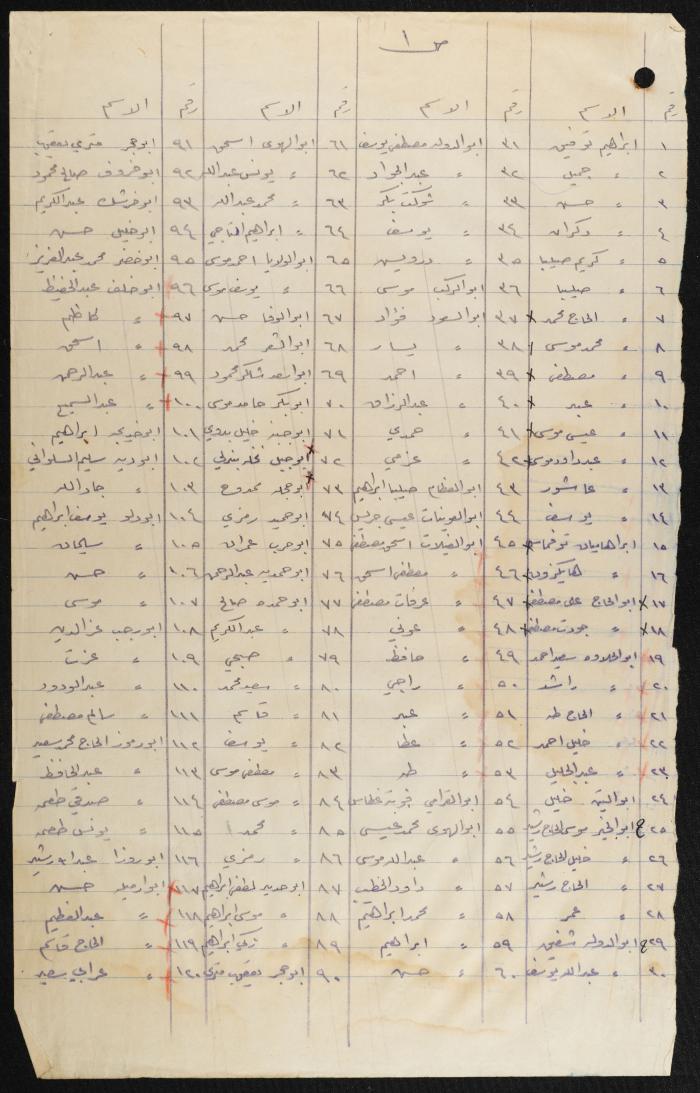 ص ١
رقم الاسم رقم الاسم رقم الاسم رقم الاسم
١ ابراهيم توفيق ٣١ ابو الدوله مصطفى يوسف ٦١ ابو الهوى اسحق ٩١ ابو حجر فخري يعقوب
٢ " جميل ٣٢ " عبد الجواد ٦٢ " يونس عبد الله ٩٢ ابو خروف صالح محمود
٣ " حسن ٣٣ " شوكت بكر ٦٣ " محمد عبد الله ٩٣ عبد الكريم
٤ " دكران ٣٤ " يوسف ٦٤ " ابراهيم التاجي ٩٤ ابو خليل حسن
٥ " كريم صليبا ٣٥ " درويش ٦٥ ابو الولايا احمد موسى ٩٥ ابو خضر محمد عبد العزيز
٦ " صليبا ٣٦ ابو الركب موسى ٦٦ " يوسف موسى ٩٦ ابو خلف عبد الحفيظ
٧ " الحاج محمد ٣٧ ابو السعود فؤاد ٦٧ ابو الوفا حسن ٩٧ " كاظم
٨ " محمد موسى ٣٨ " يسار ٦٨ ابو الشعر محمد ٩٨ " اسحق
٩ " مصطفى ٣٩ " احمد ٦٩ ابو اسعد شاكر محمود ٩٩ " عبد الرحمن
١٠ " عبد ٤٠ " عبد الرزاق ٧٠ ابو بكر حامد موسى ١٠٠ " عبد السميع
١١ " عيسى موسى ٤١ " حمدي ٧١ ابو جبنه خليل بدوي ١٠١ ابو خديجه ابراهيم
١٢ " عبد داود موسى ٤٢ " عزمي ٧٢ ابو جبل نخله ١٠٢ ابو ديه سليم السلواني
١٣ " عاشور ٤٣ ابو العظام صليبا ابراهيم ٧٣ ابو جمله ممدوح ١٠٣ " جاد الله
١٤ " يوسف ٤٤ عيسى جريس ٧٤ ابو حميد رمزي ١٠٤ ابو دلو يوسف ابراهيم
١٥ ابراهاميان ٤٥ ابو العيلات اسحق مصطفى ٧٥ ابو حرب عمران ١٠٥ " سليمان
١٦ " ٤٦ " مصطفى اسحق ٧٦ ابو حمديه عبد الرحمن ١٠٦ " حسن
١٧ ابو الحاج علي مصطفى ٤٧ " عرفات مصطفى ٧٧ ابو حمده صالح ١٠٧ " موسى
١٨ " جودت مصطفى ٤٨ " عوني ٧٨ " عبد الكريم ١٠٨ ابو رجب عز الدين
١٩ ابو الحلاوه سعيد احمد ٤٩ " حافظ ٧٩ " صبحي ١٠٩ " عزت
٢٠ " راشد ٥٠ " راجي ٨٠ " سعيد محمد ١١٠ " عبد الودود
٢١ " الحاج طه ٥١ " عبد ٨١ " قاسم ١١١ " سالم مصطفى
٢٢ " خليل احمد ٥٢ " عطا ٨٢ " يوسف ١١٢ ابو رموز الحاج محمد سعيد
٢٣ " عبد الجليل ٥٣ " طه ٨٣ " مصطفى موسى ١١٣ " عبد الحافظ
٢٤ ابو التين خليل ٥٤ غطاس ٨٤ " موسى مصطفى ١١٤ " صدقي طعمه
٢٥ ابو الخير موسى الحاج رشيد ٥٥ ابو الهوى محمد عيسى ٨٥ " محمد ١١٥ " يونس طعمه
٢٦ " خليل الحاج رشيد ٥٦ " عبد الله موسى ٨٦ " رمزي ١١٦ ابو روزا عبد الله رشيد
٢٧ " الحاج رشيد ٥٧ " داود الخطيب ٨٧ ابو حديد لطفي ابراهيم ١١٧ ابو ارميله حسن
٢٨ " عمر ٥٨ " محمد ابراهيم ٨٨ " موسى ابراهيم ١١٨ " عبد العظيم
٢٩ ابو الدوله شفيق ٥٩ " ابراهيم ٨٩ " زكي ابراهيم ١١٩ " الحاج قاسم
٣٠ " عبد الله يوسف ٦٠ " حسن ٩٠ ابو حجر يعقوب فخري ١٢٠ " عرابي سعيد